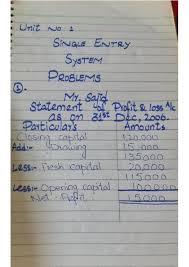 Unit No. 1
Single Entry
System
Problems
①.
Mr. Sajid
Statement of Profit & loss A/c
as on 31st Dec, 2006.
Particulars Amounts
Closing capital 120,000
Add:- Drawing 15,000
135,000
Less:- Fresh capital 20,000
115,000
Less:- Opening capital 100,000
Net Profit 15,000